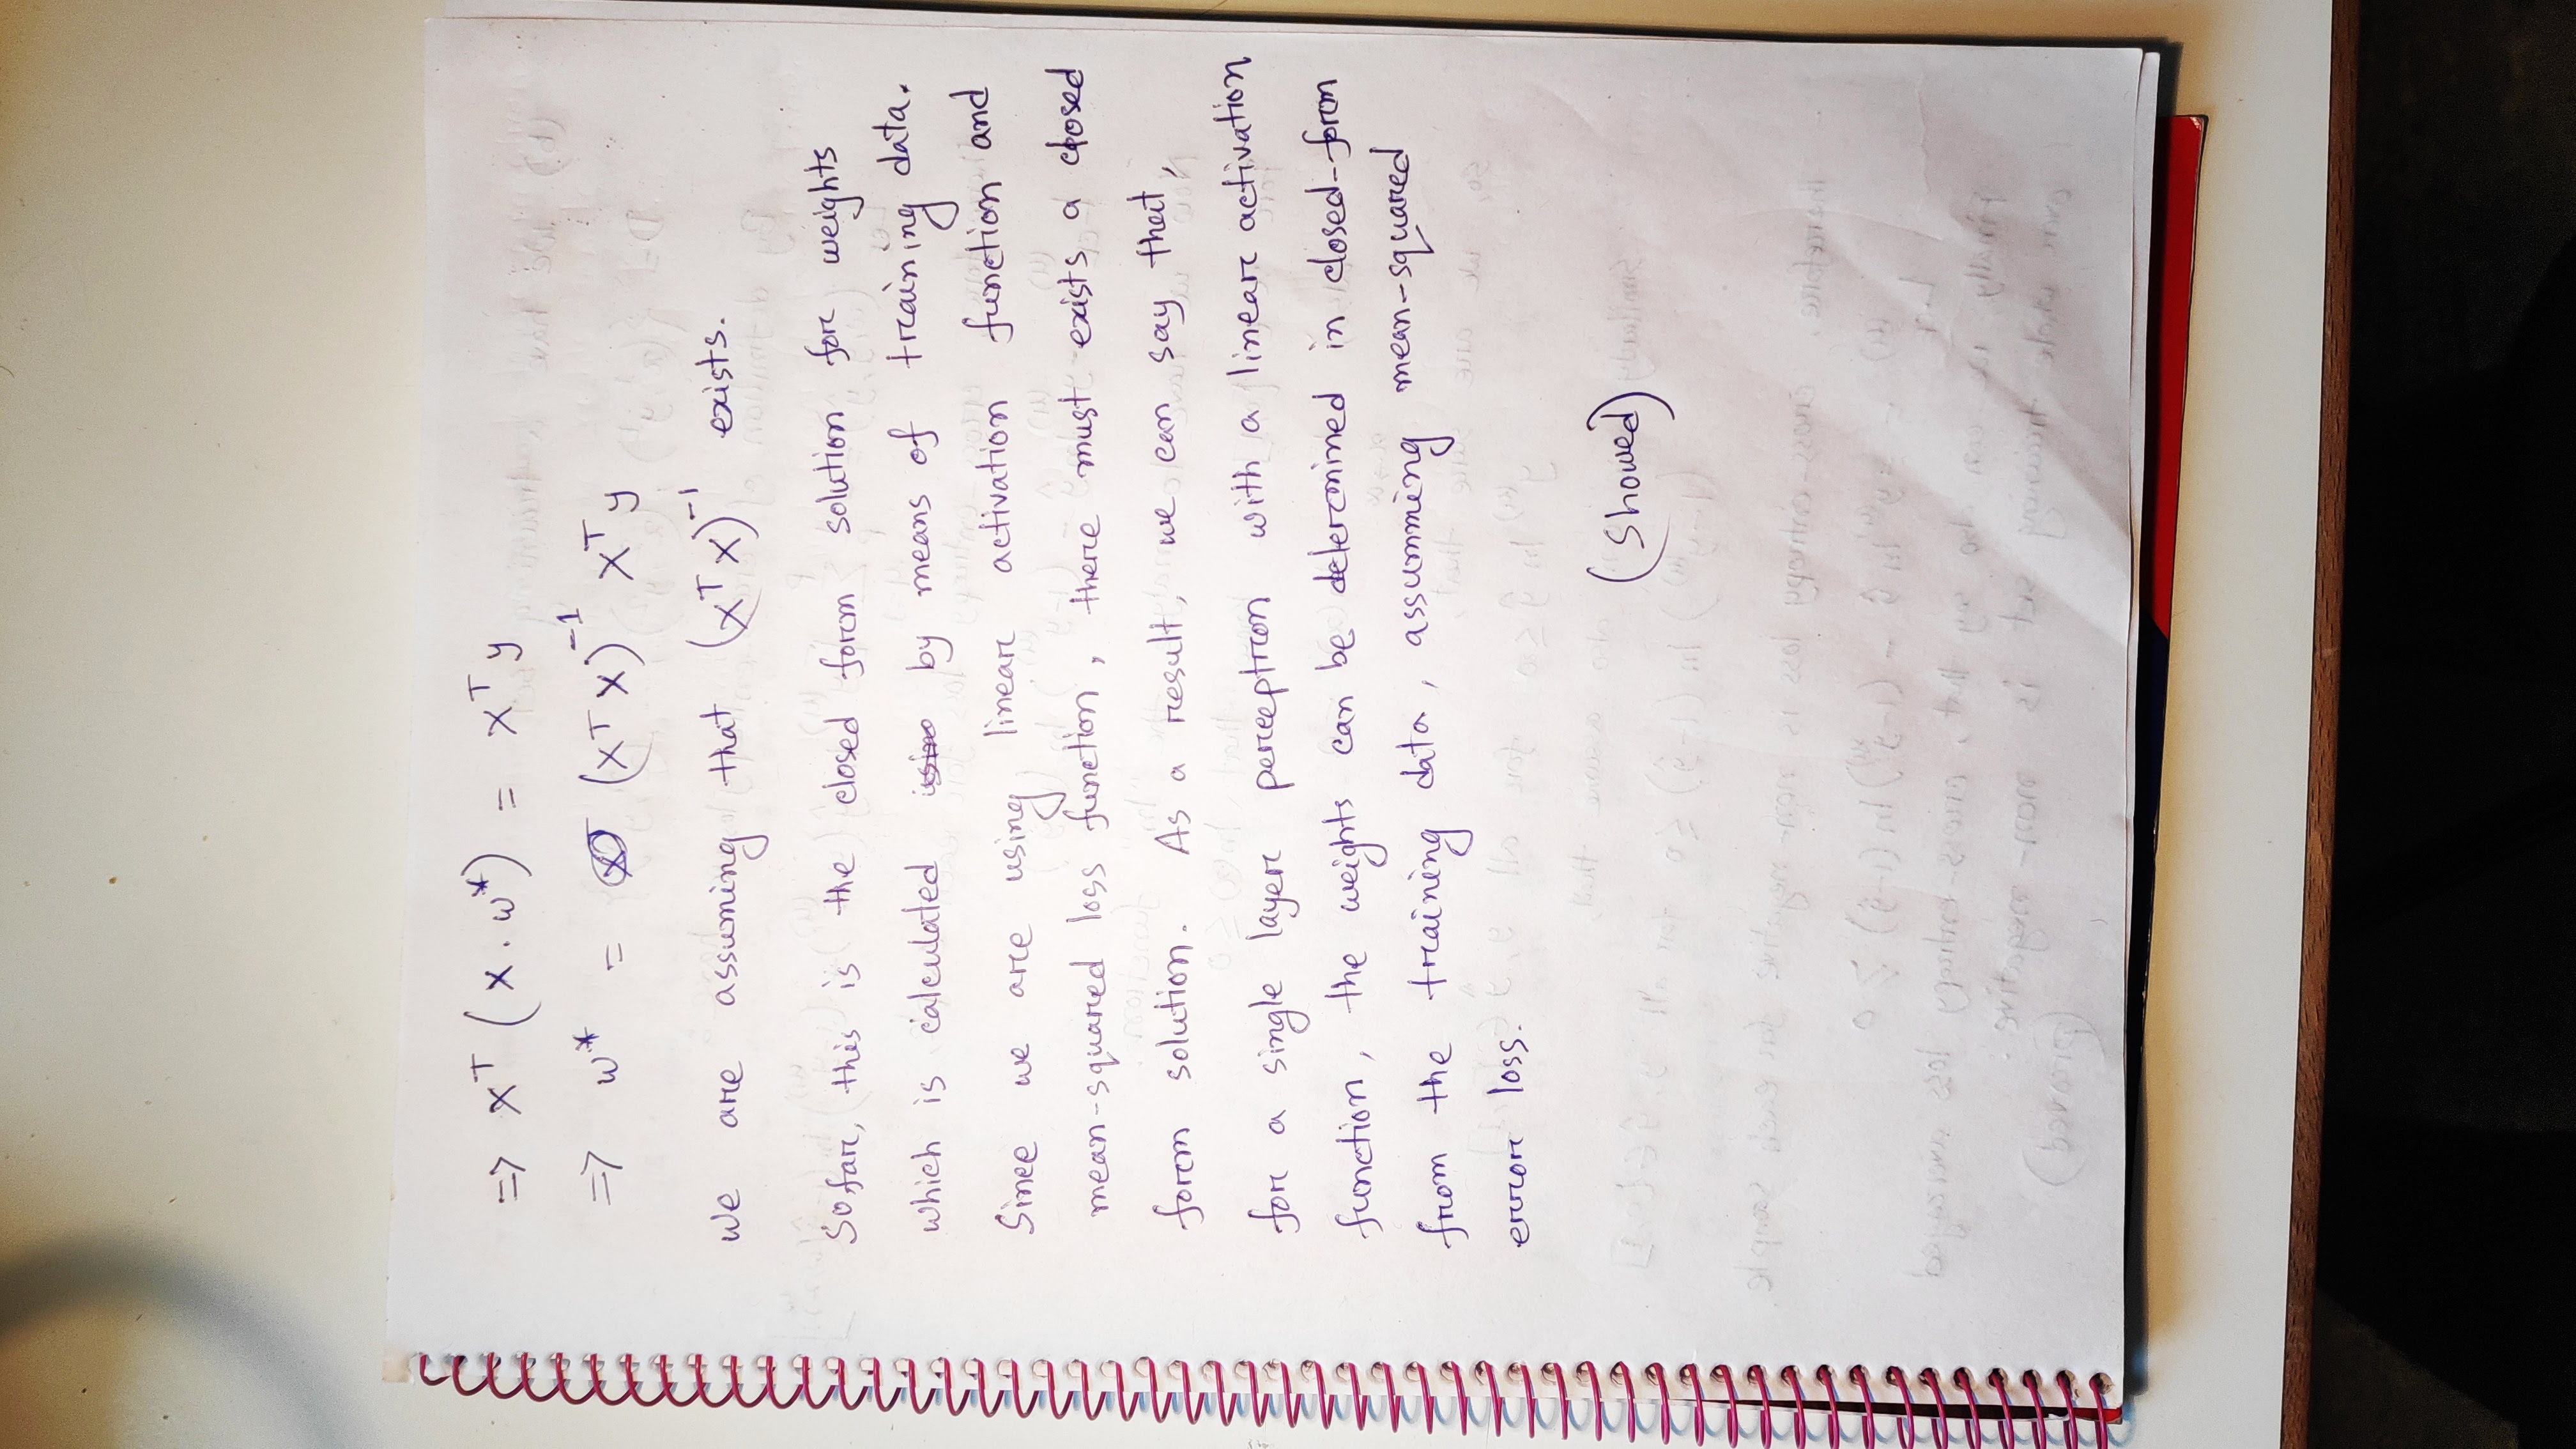 ⇒ X^T (X . w*) = X^T y
⇒ w* = (X^T X)^-1 X^T y
we are assuming that (X^T X)^-1 exists.
So far, this is the closed form solution for weights
which is calculated by means of training data.
Since we are using linear activation function and
mean-squared loss function, there must exists a closed
form solution. As a result, we can say that,
for a single layer perceptron with a linear activation
function, the weights can be determined in closed-form
from the training data, assumming mean-squared
error loss.
(Showed)